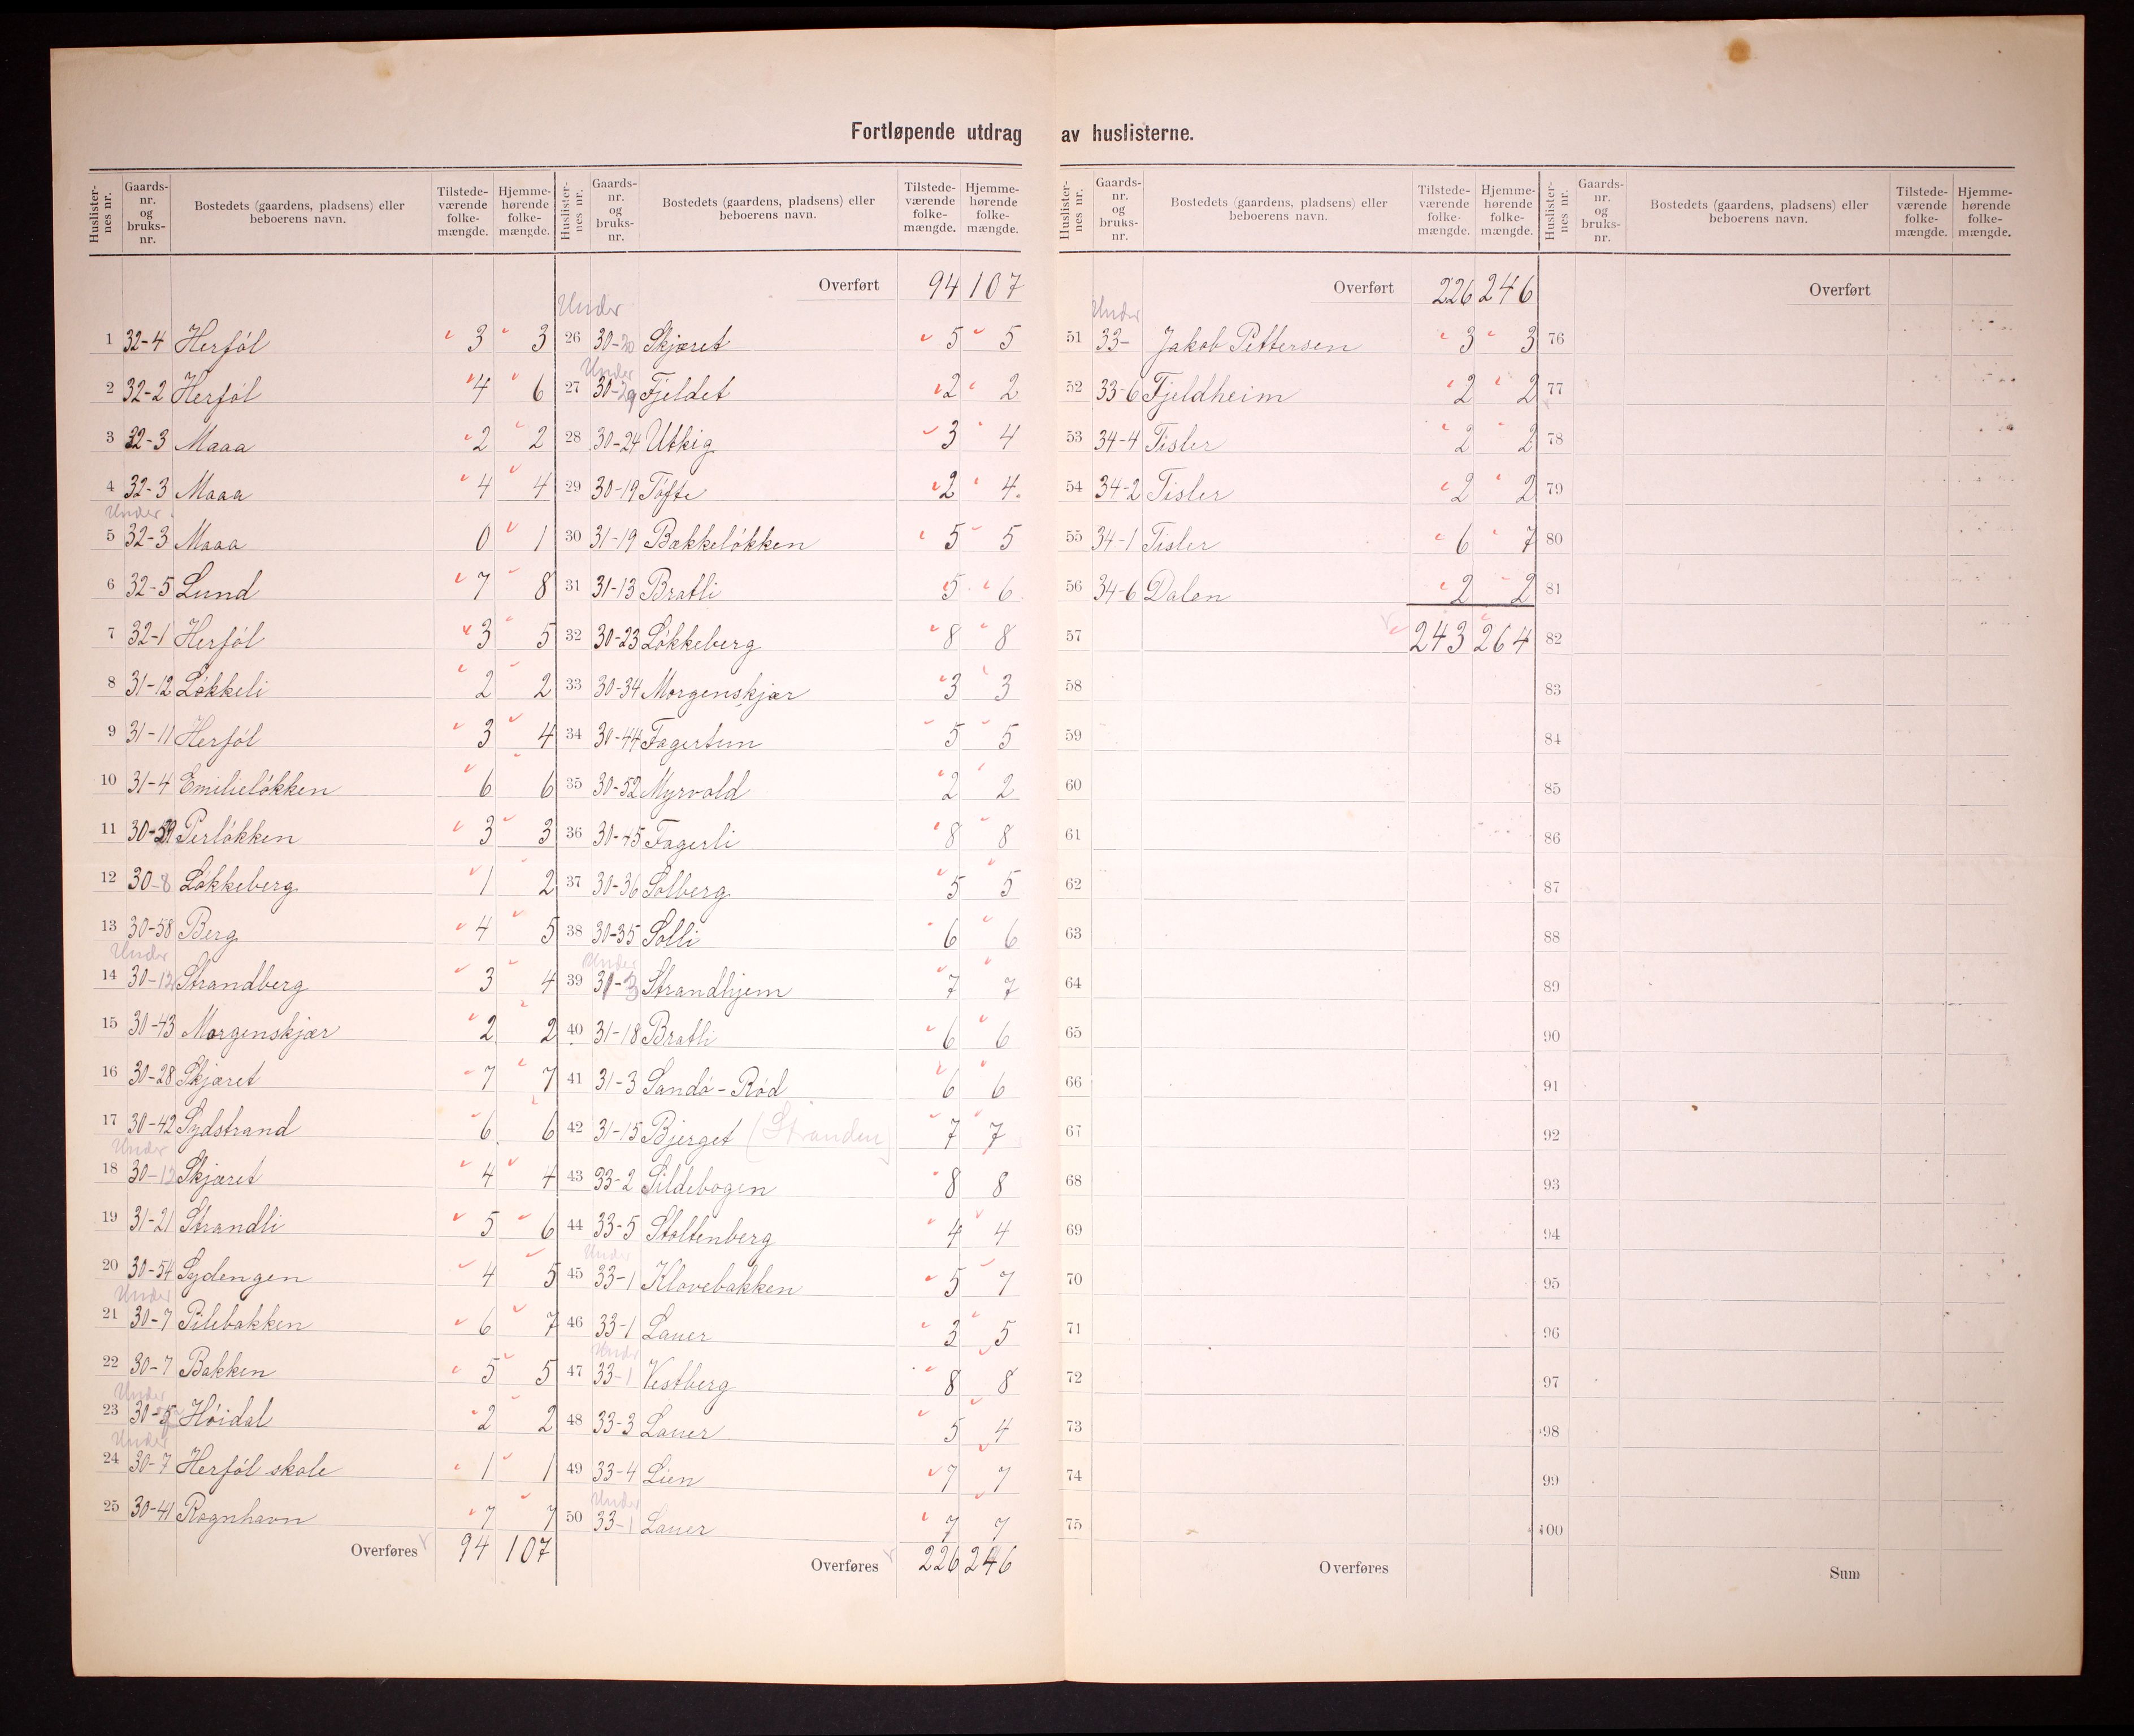 Fortløpende utdrag av huslisterne.
Huslister-nes nr. Gaards-nr. og bruks-nr. Bostedets (gaardens, pladsens) eller beboerens navn. Tilstede-værende folke-mængde. Hjemme-hørende folke-mængde.
1 32-4 Herføl 3 3
2 32-2 Herføl 4 6
3 32-3 Maaa 2 2
4 32-3 Maaa 4 4
Under
5 32-3 Maaa 0 1
6 32-5 Lund 7 8
7 32-1 Herføl 3 5
8 31-12 Løkkeli 2 2
9 31-11 Herføl 3 4
10 31-4 Emilieløkken 6 6
11 30-59 Perløkken 3 3
12 30-8 Løkkeberg 1 2
13 30-58 Berg 4 5
Under
14 30-12 Strandberg 3 4
15 30-43 Morgenskjær 2 2
16 30-28 Skjæret 7 7
17 30-42 Sydstrand 6 6
Under
18 30-12 Skjæret 4 4
19 31-21 Strandli 5 6
20 30-54 Sydengen 4 5
Under
21 30-7 Pilebakken 6 7
22 30-7 Bakken 5 5
Under
23 30-5 Høidal 2 2
Under
24 30-7 Herføl skole 1 1
25 30-41 Rognhavn 7 7
Overføres 94 107
Huslister-nes nr. Gaards-nr. og bruks-nr. Bostedets (gaardens, pladsens) eller beboerens navn. Tilstede-værende folke-mængde. Hjemme-hørende folke-mængde.
Overført 94 107
Under
26 30-20 Skjæret 5 5
Under
27 30-29 Fjeldet 2 2
28 30-24 Utkig 3 4
29 30-19 Tøfte 2 4
30 31-19 Bækkeløkken 5 5
31 31-13 Bratli 5 6
32 30-23 Løkkeberg 8 8
33 30-34 Morgenskjær 3 3
34 30-44 Fagertun 5 5
35 30-52 Myrvold 2 2
36 30-45 Fagerli 8 8
37 30-36 Solberg 5 5
38 30-35 Solli 6 6
Under
39 31-3 Strandhjem 7 7
40 31-18 Bratli 6 6
41 31-3 Sandø-Rød 6 6
42 31-15 Bjerget (Stranden) 7 7
43 33-2 Sildebogen 8 8
44 33-5 Stoltenberg 4 4
Under
45 33-1 Klovebakken 5 7
46 33-1 Lauer 3 5
Under
47 33-1 Vestberg 8 8
48 33-3 Lauer 5 4
49 33-4 Lien 7 7
Under
50 33-1 Lauer 7 7
Overføres 226 246
Huslister-nes nr. Gaards-nr. og bruks-nr. Bostedets (gaardens, pladsens) eller beboerens navn. Tilstede-værende folke-mængde. Hjemme-hørende folke-mængde.
Overført 226 246
Under
51 33- Jakob Pettersen 3 3
52 33-6 Fjeldheim 2 2
53 34-4 Tisler 2 2
54 34-2 Tisler 2 2
55 34-1 Tisler 6 7
56 34-6 Dalen 2 2
57 243 264
58
59
60
61
62
63
64
65
66
67
68
69
70
71
72
73
74
75
Overføres
Huslister-nes nr. Gaards-nr. og bruks-nr. Bostedets (gaardens, pladsens) eller beboerens navn. Tilstede-værende folke-mængde. Hjemme-hørende folke-mængde.
Overført
76
77
78
79
80
81
82
83
84
85
86
87
88
89
90
91
92
93
94
95
96
97
98
99
100
Sum